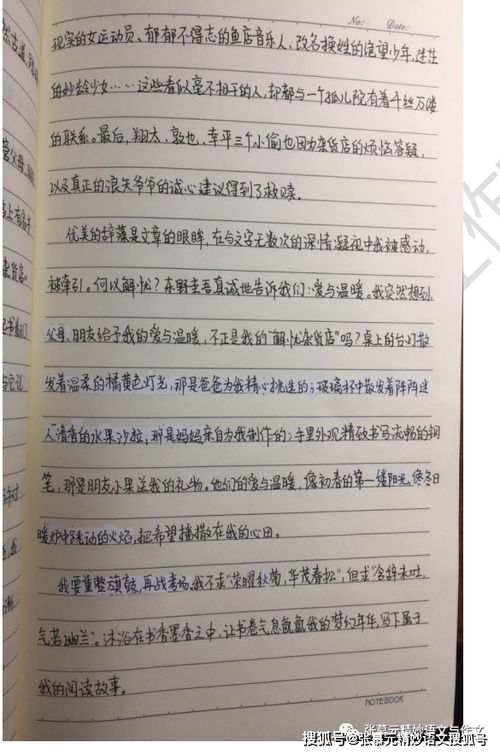 No: Date:
现实的女运动员、郁郁不得志的鱼店音乐人、改名换姓的绝望少年、迷茫
的妙龄少女……这些看似毫不相干的人，却都与一个孤儿院有着千丝万缕
的联系。最后，翔太、敦也、幸平三个小偷也因为杂货店的烦恼答疑，
以及真正的浪矢爷爷的诚心建议得到了救赎。
优美的辞藻是文章的眼眸，在与文字无数次的深情凝视中我被感动，
被牵引。何以解忧？东野圭吾真诚地告诉我们：爱与温暖。我突然想到，
父母、朋友给予我的爱与温暖，不正是我的“解忧杂货店”吗？桌上的台灯散
发着温柔的橘黄色灯光，那是爸爸为我精心挑选的；玻璃杯中散发着阵阵迷
人清香的水果沙拉，那是妈妈亲自为我制作的；手里外观精致书写流畅的钢
笔，那是朋友小果送我的礼物。他们的爱与温暖，像初春的第一缕阳光，像冬日
暖炉中跳动的火焰，把希望播撒在我的心田。
我要重整旗鼓，再战考场。我不求“荣曜秋菊，华茂春松”，但求“含辞未吐，
气若幽兰”。沐浴在书香墨香之中，让书卷气息氤氲我的梦幻年华，写下属于
我的阅读故事。
NOTEBOOK
张慕元精妙语文与作文
搜狐号@张慕元精妙语文搜狐号